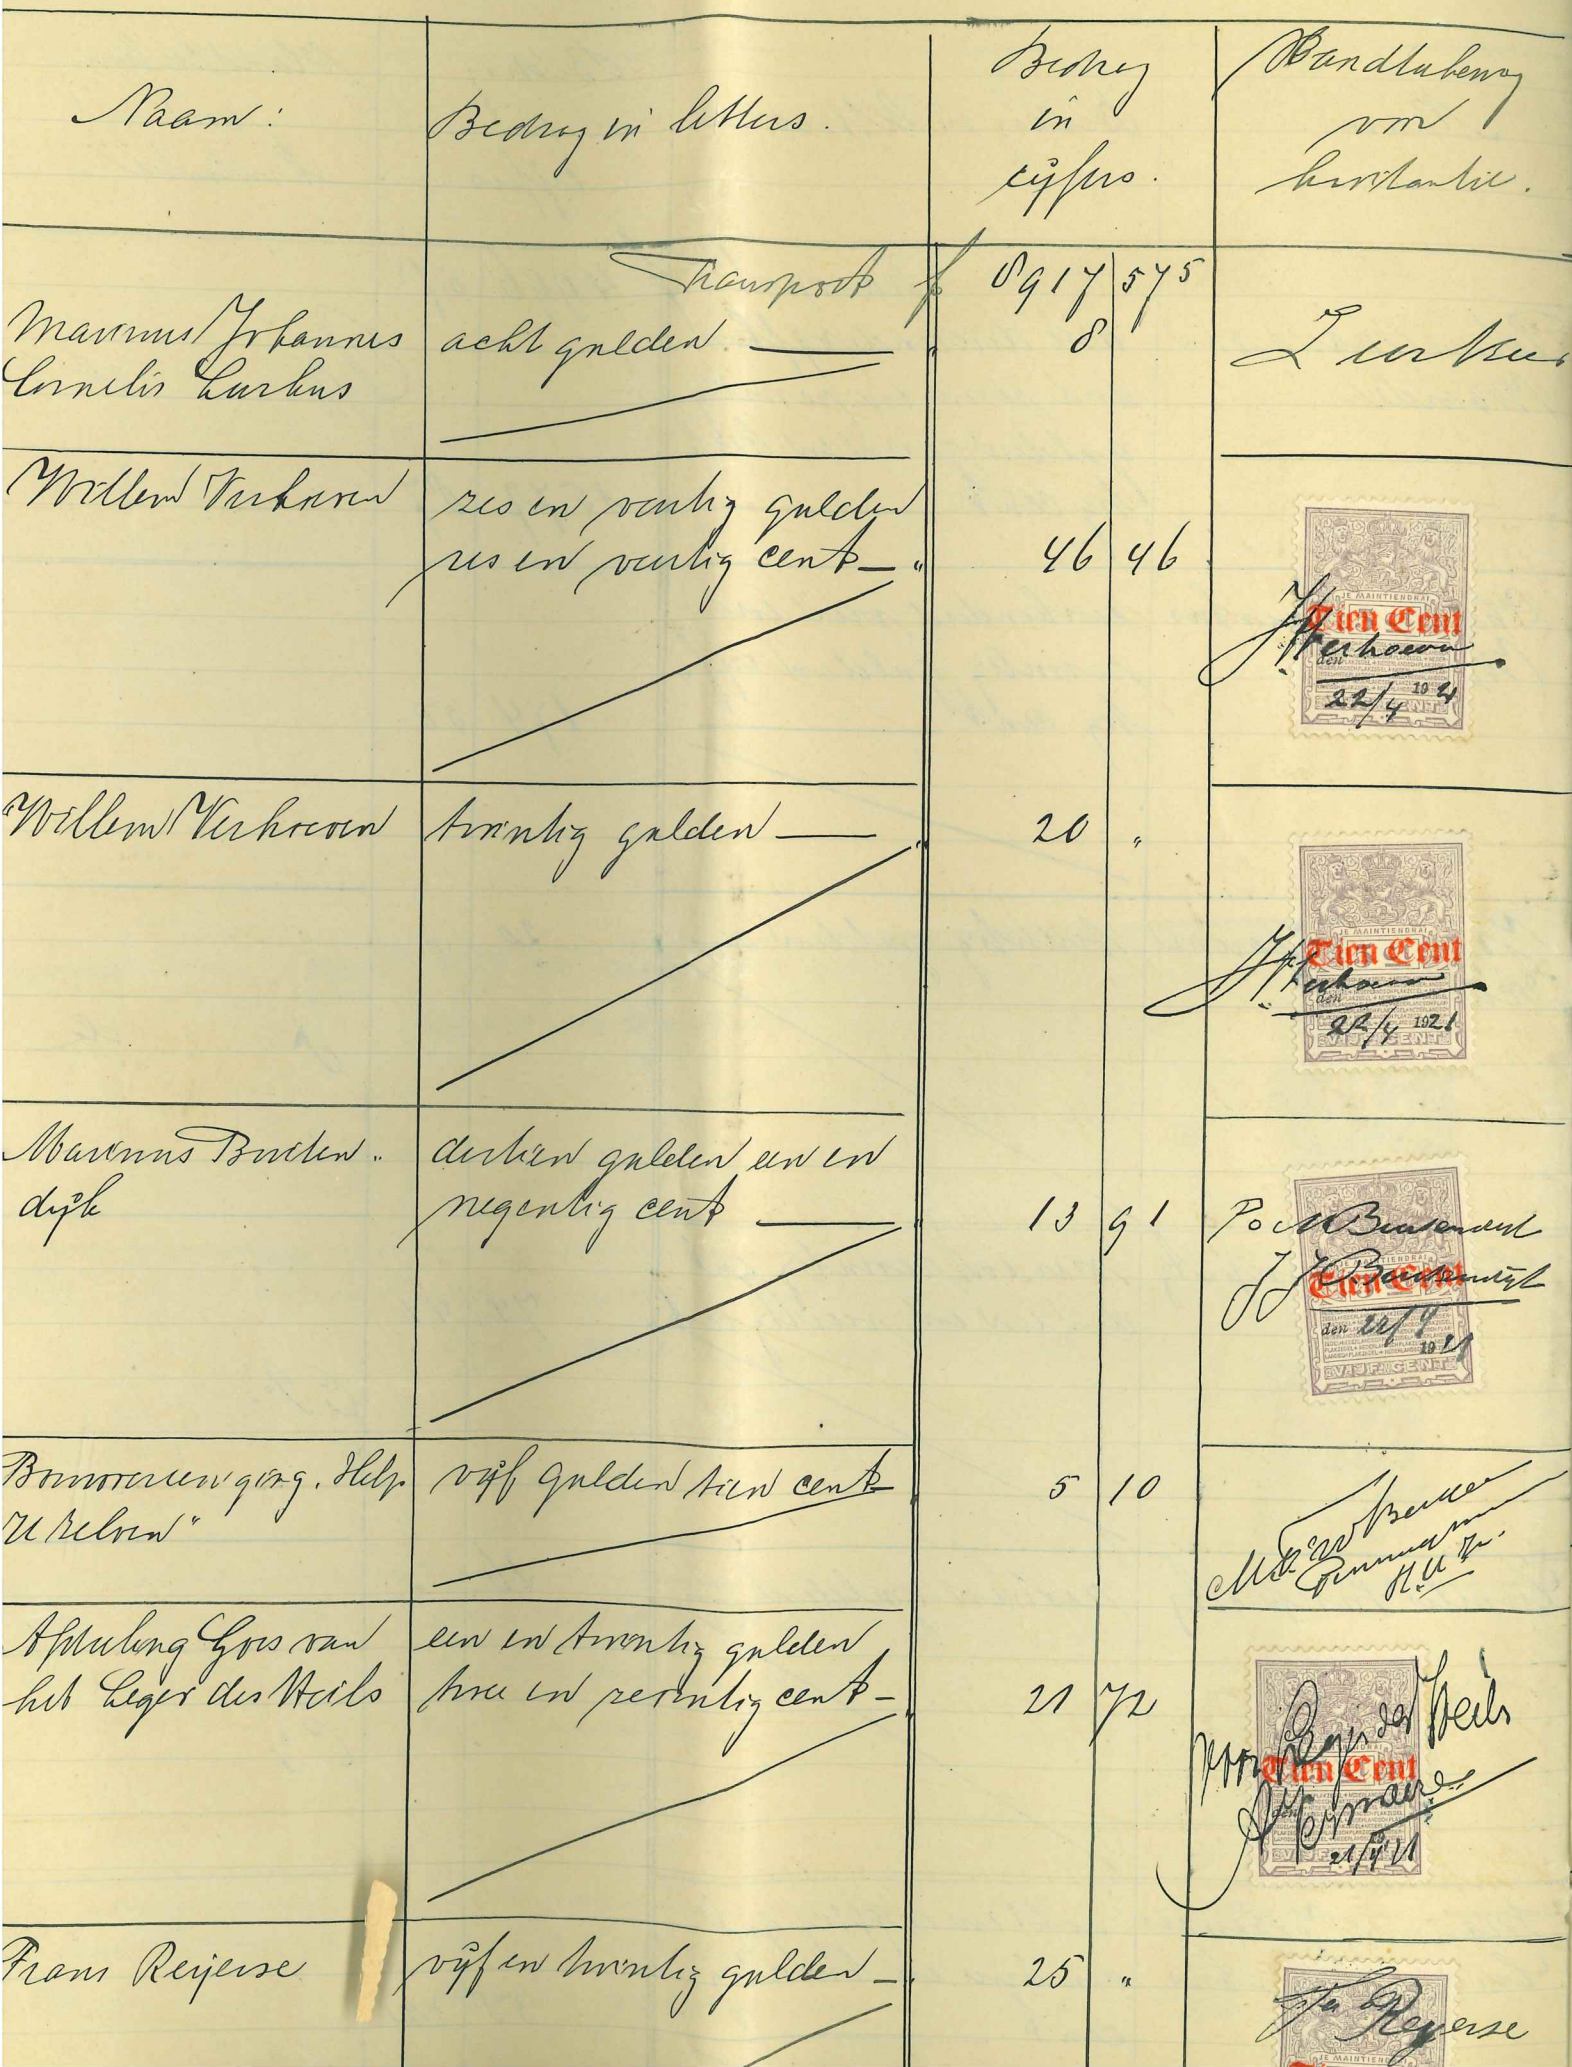 Naam:
Bedrag in letters.
Bedrag
in
cijfers.
Handtekening
voor
kwitantie.
Transport f 8917 575
Marinus Johannes
Cornelis
acht gulden
8
Willem Verhoeven
zes en veertig gulden
zes en veertig cent
46 46
JE MAINTIENDRAI
Tien Cent
Verhoeven
22/4 1921
Willem Verhoeven
twintig gulden
20 "
JE MAINTIENDRAI
Tien Cent
Verhoeven
den
22/4 1921
VIJF CENT
Marinus Buiten„
dijk
dertien gulden een en
negentig cent
13 91
Buitendijk
Tien Cent
Buitendijk
den 22/4
1921
VIJF CENT
Bouwvereeniging „Help
U zelven"
vijf gulden tien cent
5 10
Penningm
H.U.Z.
Afdeeling Goes van
het Leger des Heils
een en twintig gulden
twee en zeventig cent
21 72
voor Leger des Heils
Tien Cent
21/4 21
Frans Reijerse
vijf en twintig gulden
25 "
Reyerse
JE MAINTIENDRAI